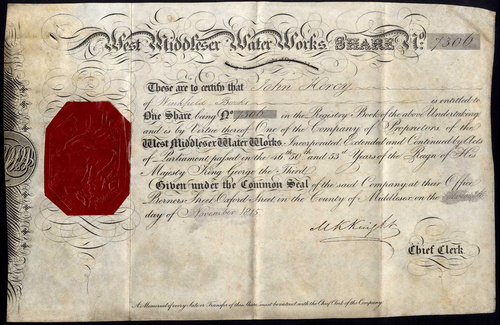 West Middlesex Water Works SHARE No. 7306
These are to certify that John Hercy
of Winkfield Berks is entitled to
One Share being No 7306 in the Registry Book of the above Undertaking
and is by Virtue thereof One of the Company of Proprietors of the
West Middlesex Water Works Incorporated Extended and Continued by Acts
of Parliament passed in the 46th 50th and 53rd Years of the Reign of His
Majesty King George the Third
Given under the Common Seal of the said Company at their Office
Berners Street Oxford Street, in the County of Middlesex on the
day of November 1815
M K Knight
Chief Clerk
A Memorial of every Sale or Transfer of this Share must be entered with the Chief Clerk of the Company